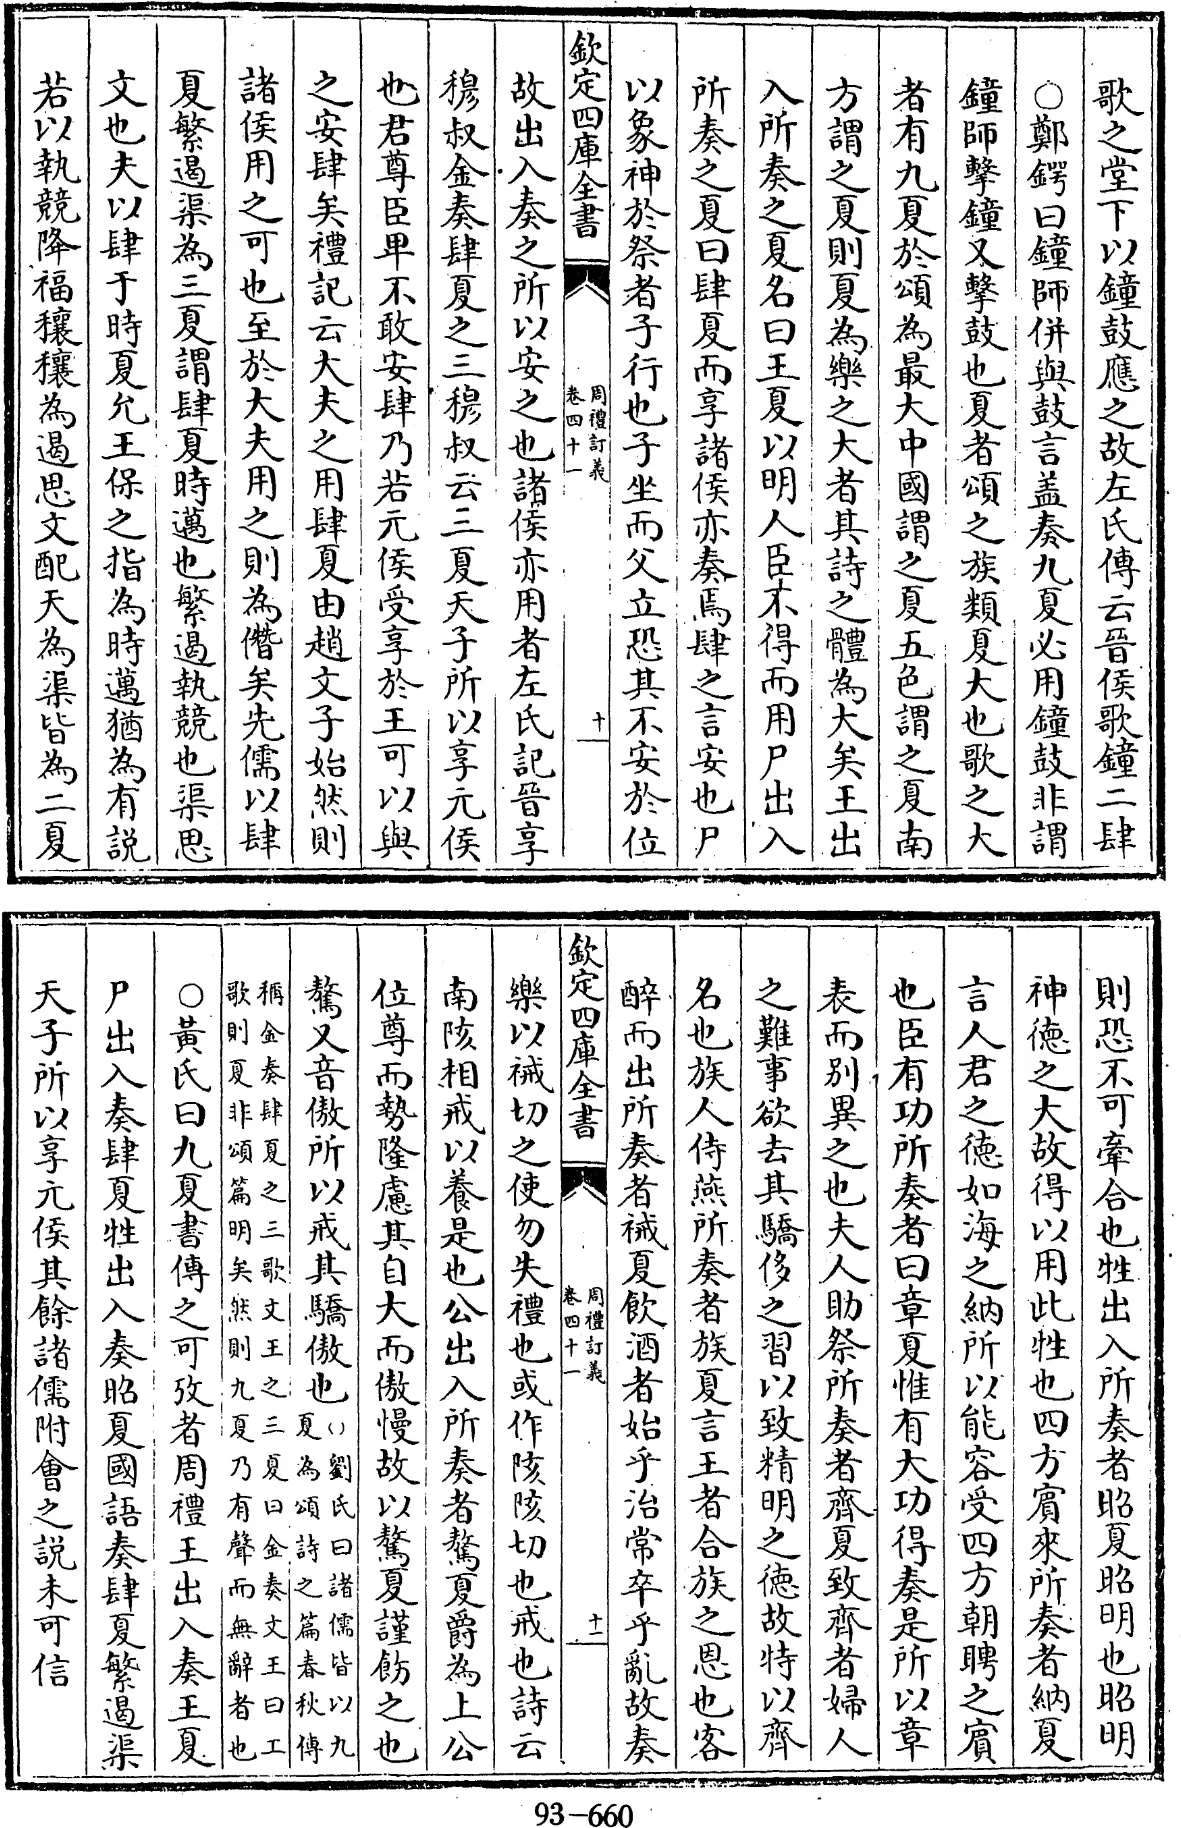 歌之堂下以鐘鼓應之故左氏傳云晉侯歌鐘二肆
○鄭鍔曰鐘師併與鼓言盖奏九夏必用鐘鼓非謂
鐘師擊鐘又擊鼓也夏者頌之族類夏大也歌之大
者有九夏於頌為最大中國謂之夏五色謂之夏南
方謂之夏則夏為樂之大者其詩之體為大矣王出
入所奏之夏名曰王夏以明人臣不得而用尸出入
所奏之夏曰肆夏而享諸侯亦奏焉肆之言安也尸
以象神於祭者子行也子坐而父立恐其不安於位
欽定四庫全書
周禮訂義
卷四十一
十
故出入奏之所以安之也諸侯亦用者左氏記晉享
穆叔金奏肆夏之三穆叔云三夏天子所以享元侯
也君尊臣卑不敢安肆乃若元侯受享於王可以與
之安肆矣禮記云大夫之用肆夏由趙文子始然則
諸侯用之可也至於大夫用之則為僭矣先儒以肆
夏繁遏渠為三夏謂肆夏時邁也繁遏執競也渠思
文也夫以肆于時夏允王保之指為時邁猶為有説
若以執競降福穰穰為遏思文配天為渠皆為二夏
則恐不可牽合也牲出入所奏者昭夏昭明也昭明
神德之大故得以用此牲也四方賓來所奏者納夏
言人君之德如海之納所以能容受四方朝聘之賓
也臣有功所奏者曰章夏惟有大功得奏是所以章
表而別異之也夫人助祭所奏者齊夏致齊者婦人
之難事欲去其驕侈之習以致精明之德故特以齊
名也族人侍燕所奏者族夏言王者合族之恩也客
醉而出所奏者祴夏飲酒者始乎治常卒乎亂故奏
欽定四庫全書
周禮訂義
卷四十一
十一
樂以祴切之使勿失禮也或作陔陔切也戒也詩云
南陔相戒以養是也公出入所奏者驁夏爵為上公
位尊而勢隆慮其自大而傲慢故以驁夏謹飭之也
驁又音傲所以戒其驕傲也○劉氏曰諸儒皆以九
夏為頌詩之篇春秋傳
稱金奏肆夏之三歌文王之三夏曰金奏文王曰工
歌則夏非頌篇明矣然則九夏乃有聲而無辭者也
○黃氏曰九夏書傳之可攷者周禮王出入奏王夏
尸出入奏肆夏牲出入奏昭夏國語奏肆夏繁遏渠
天子所以享元侯其餘諸儒附會之説未可信
93-660